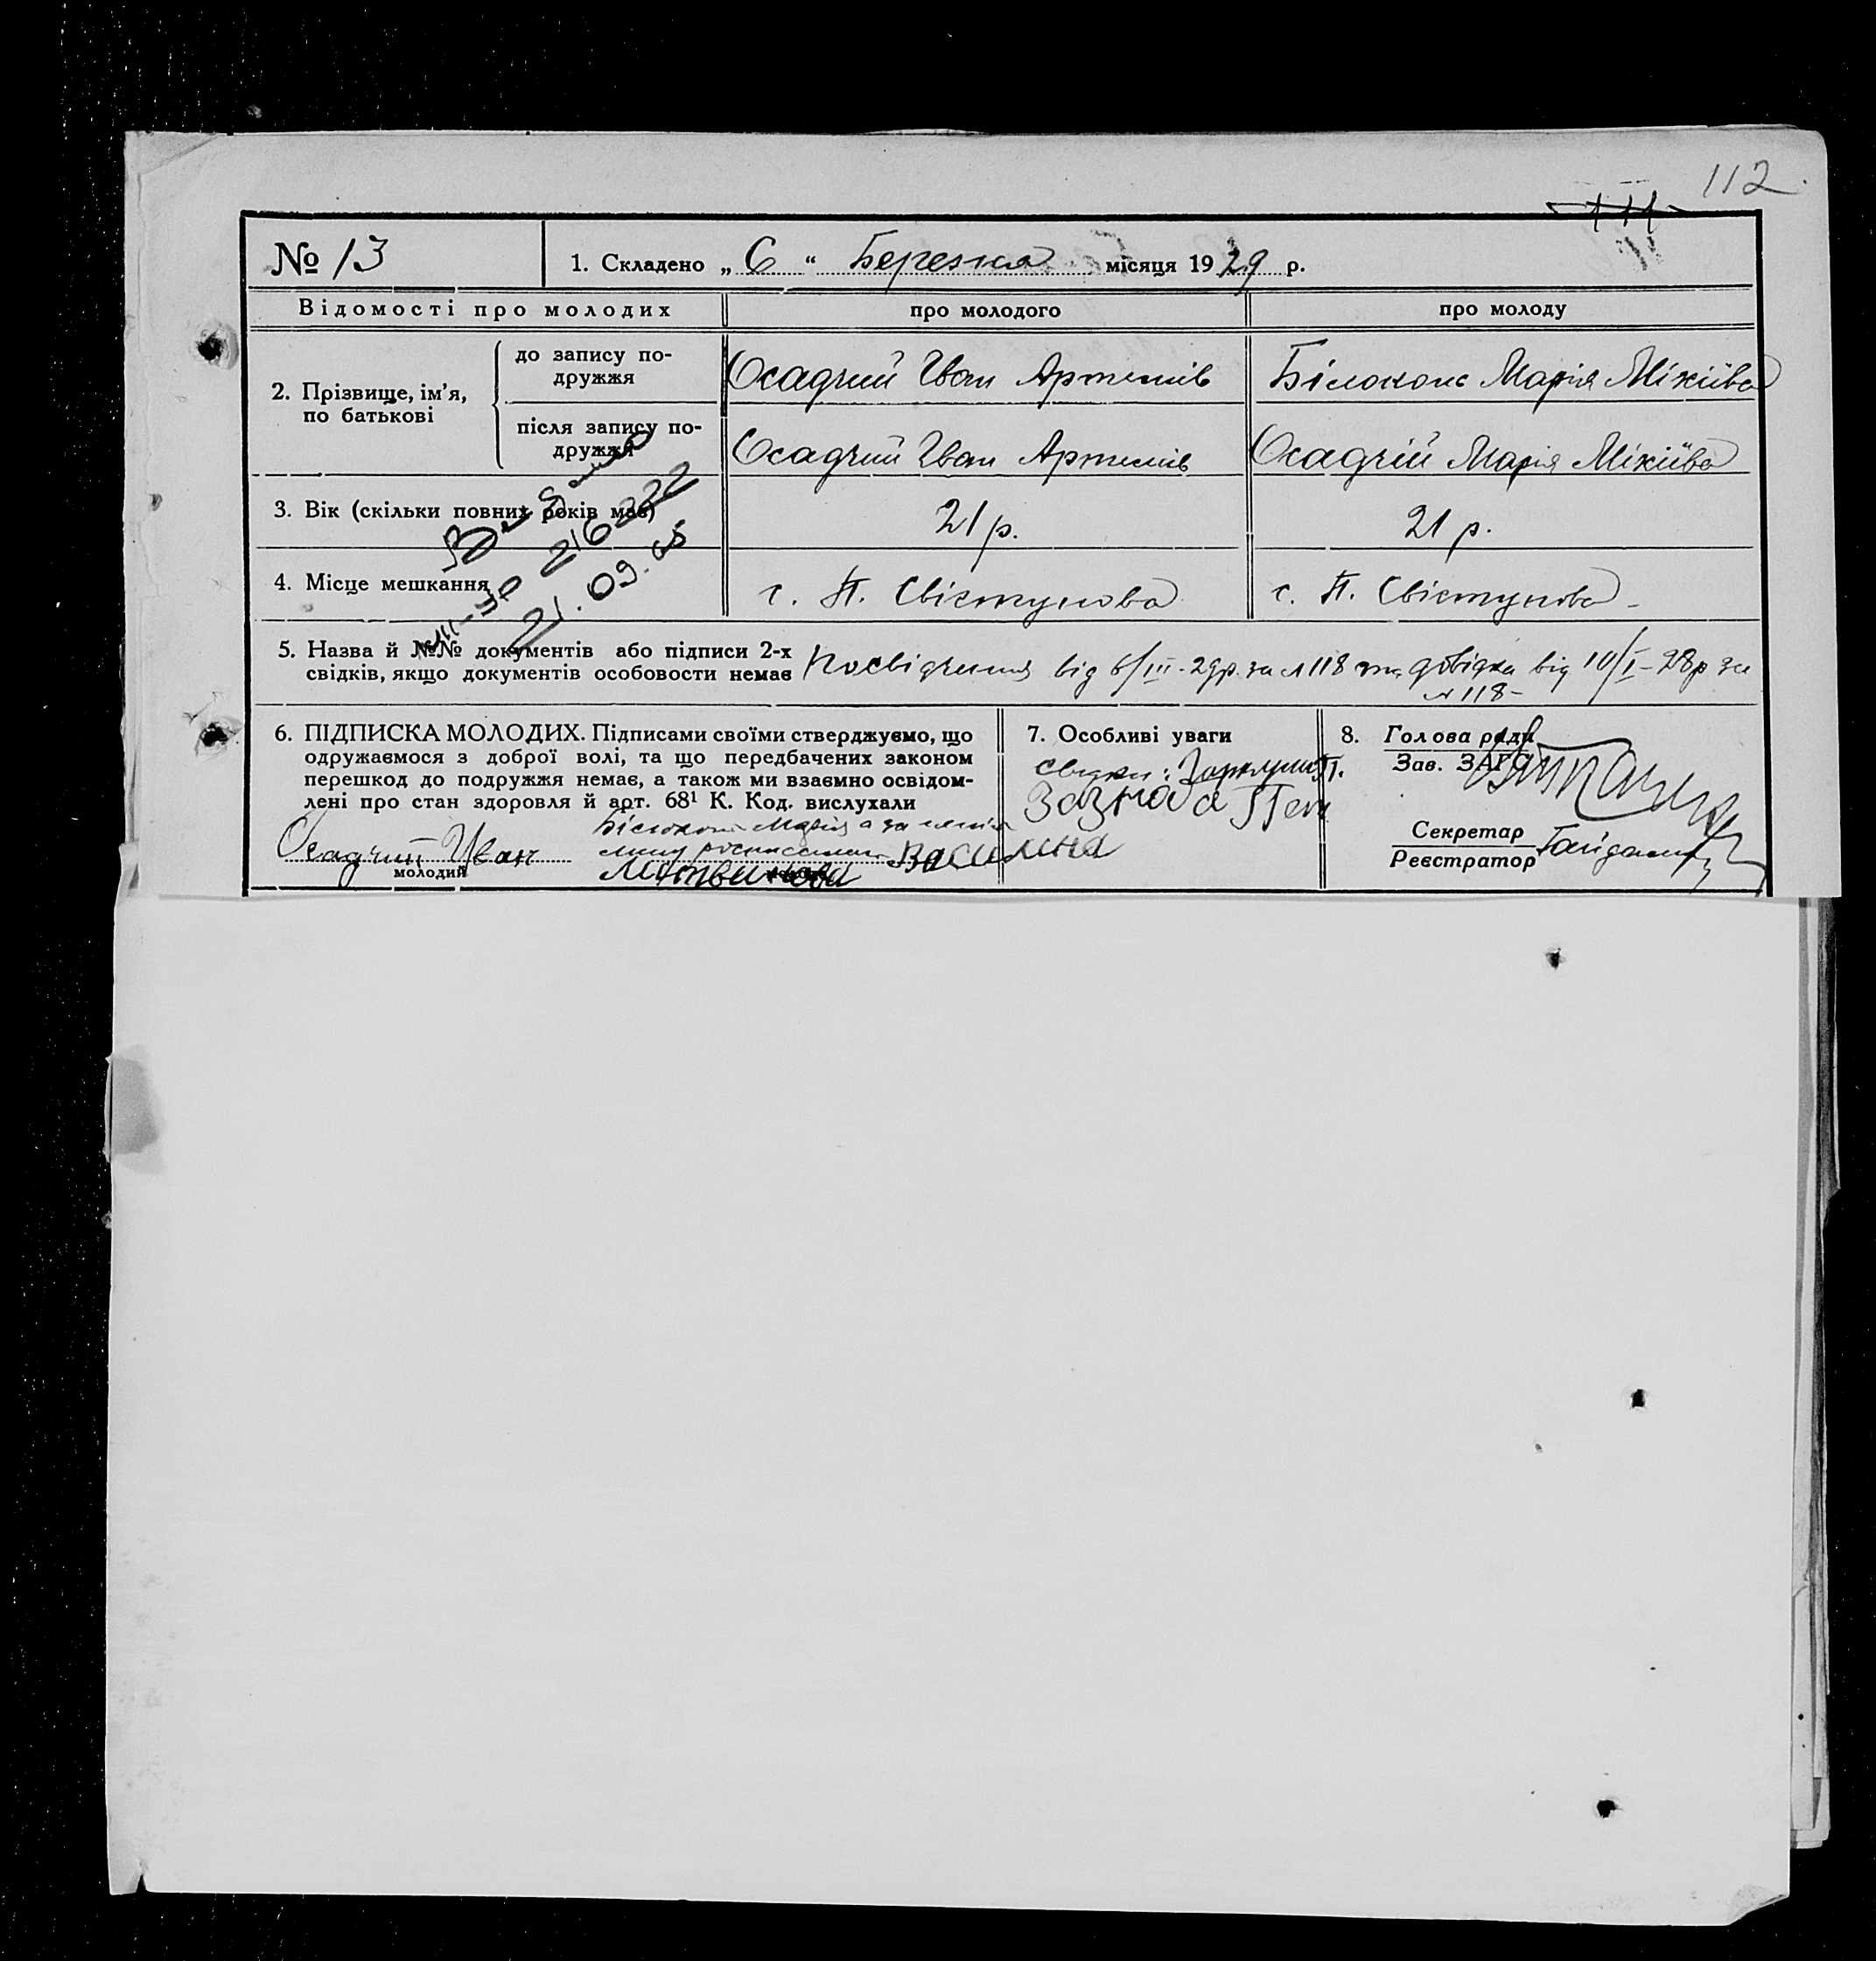 112
111
№ 13
1. Складено „ 6 “ Березня місяця 1929 р.
Відомості про молодих
про молодого
про молоду
2. Прізвище, ім’я,
по батькові
до запису по-
дружжя
Осадчий Іван Артемів
Білоконь Марія Мікіїва
після запису по-
дружжя
Осадчий Іван Артемів
Осадчій Марія Мікіїва
3. Вік (скільки повних років має)
21 р.
21 р.
4. Місце мешкання
с. П. Свістунова
с. П. Свістунова
216222
21.09.65
5. Назва й №№ документів або підписи 2-х
свідків, якщо документів особовости немає
Посвідчення від 6/III-29р. за №118 та довідка від 10/I-28р за
№118-
6. ПІДПИСКА МОЛОДИХ. Підписами своїми стверджуємо, що
одружаємося з доброї волі, та що передбачених законом
перешкод до подружжя немає, а також ми взаємно освідом-
лені про стан здоровля й арт. 68¹ К. Код. вислухали
Осадчий Іван
молодий
Білоконь Марія а за
Василина
Литвинова
7. Особливі уваги
Свідки:
8. Голова ради
Зав. ЗАГС
Секретар
Реєстратор